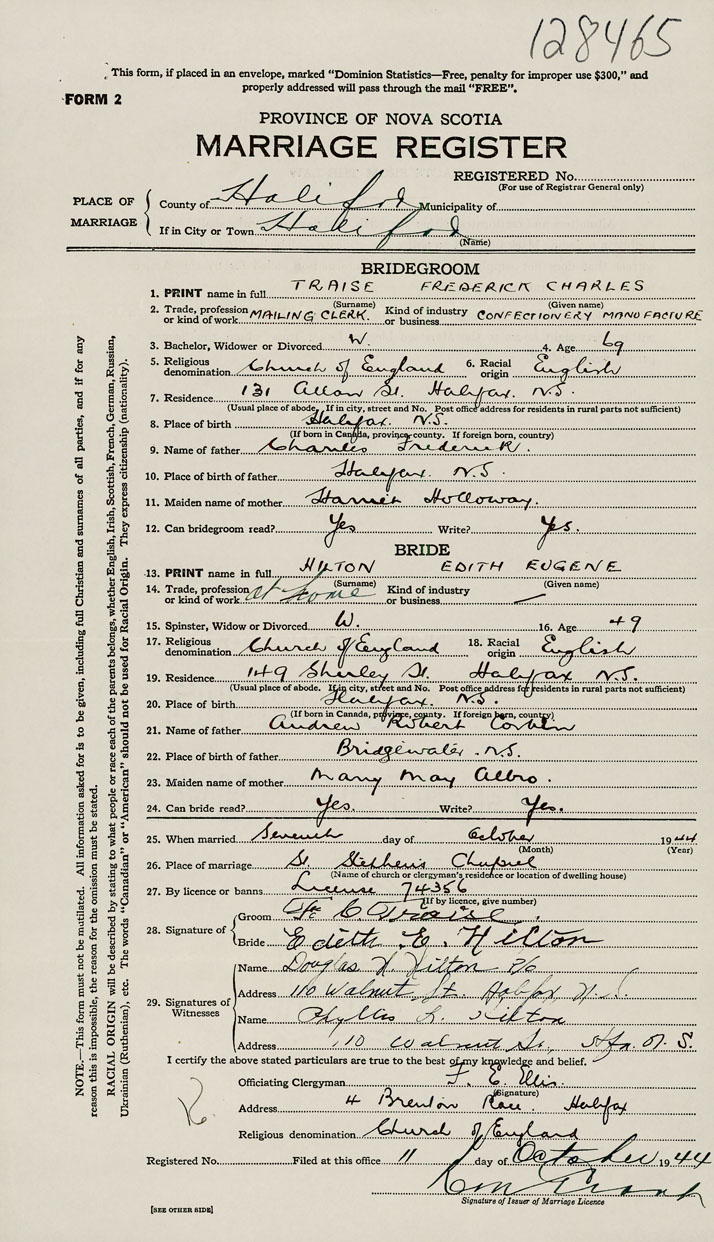 128465
This form, if placed in an envelope, marked "Dominion Statistics—Free, penalty for improper use $300," and
properly addressed will pass through the mail "FREE".
FORM 2
PROVINCE OF NOVA SCOTIA
MARRIAGE REGISTER
REGISTERED No.
(For use of Registrar General only)
PLACE OF MARRIAGE
County of Halifax Municipality of
If in City or Town Halifax
(Name)
BRIDEGROOM
1. PRINT name in full TRAISE FREDERICK CHARLES
(Surname) (Given name)
2. Trade, profession or kind of work MAILING CLERK. Kind of industry or business CONFECTIONERY MANUFACTURE
3. Bachelor, Widower or Divorced W. 4. Age 69
5. Religious denomination Church of England 6. Racial origin English
7. Residence 131 Allan St. Halifax. N.S.
(Usual place of abode. If in city, street and No. Post office address for residents in rural parts not sufficient)
8. Place of birth Halifax. N.S.
(If born in Canada, province, county. If foreign born, country)
9. Name of father Charles Frederick.
10. Place of birth of father Halifax. N.S.
11. Maiden name of mother Harriet Holloway.
12. Can bridegroom read? Yes Write? Yes.
BRIDE
13. PRINT name in full HILTON EDITH EUGENE
(Surname) (Given name)
14. Trade, profession or kind of work at home Kind of industry or business —
15. Spinster, Widow or Divorced W. 16. Age 49
17. Religious denomination Church of England 18. Racial origin English
19. Residence 149 Shirley St. Halifax N.S.
(Usual place of abode. If in city, street and No. Post office address for residents in rural parts not sufficient)
20. Place of birth Halifax. N.S.
(If born in Canada, province, county. If foreign born, country)
21. Name of father Andrew Robert Corbin
22. Place of birth of father Bridgewater. N.S.
23. Maiden name of mother Mary May Albro.
24. Can bride read? Yes. Write? Yes.
25. When married Seventh day of October 1944
(Month) (Year)
26. Place of marriage St. Stephen's Chapel
(Name of church or clergyman's residence or location of dwelling house)
27. By licence or banns License 74356
(If by licence, give number)
28. Signature of
Groom C Traise.
Bride Edith E. Hilton
29. Signatures of Witnesses
Name Douglas H. Hilton
Address 110 Walnut St. Halifax N.S.
Name Phyllis L. Hilton
Address 110 Walnut St., Hfx. N.S.
I certify the above stated particulars are true to the best of my knowledge and belief.
Officiating Clergyman F. E. Ellis.
(Signature)
Address 4 Brenton Place. Halifax
Religious denomination Church of England
Registered No. Filed at this office 11 day of October 1944
Signature of Issuer of Marriage Licence
[SEE OTHER SIDE]
NOTE.—This form must not be mutilated. All information asked for is to be given, including full Christian and surnames of all parties, and if for any
reason this is impossible, the reason for the omission must be stated.
RACIAL ORIGIN will be described by stating to what people or race each of the parents belongs, whether English, Irish, Scottish, French, German, Russian,
Ukrainian (Ruthenian), etc. The words "Canadian" or "American" should not be used for Racial Origin. They express citizenship (nationality).